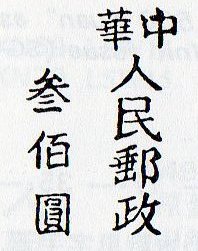 中華人民郵政
叁佰圓